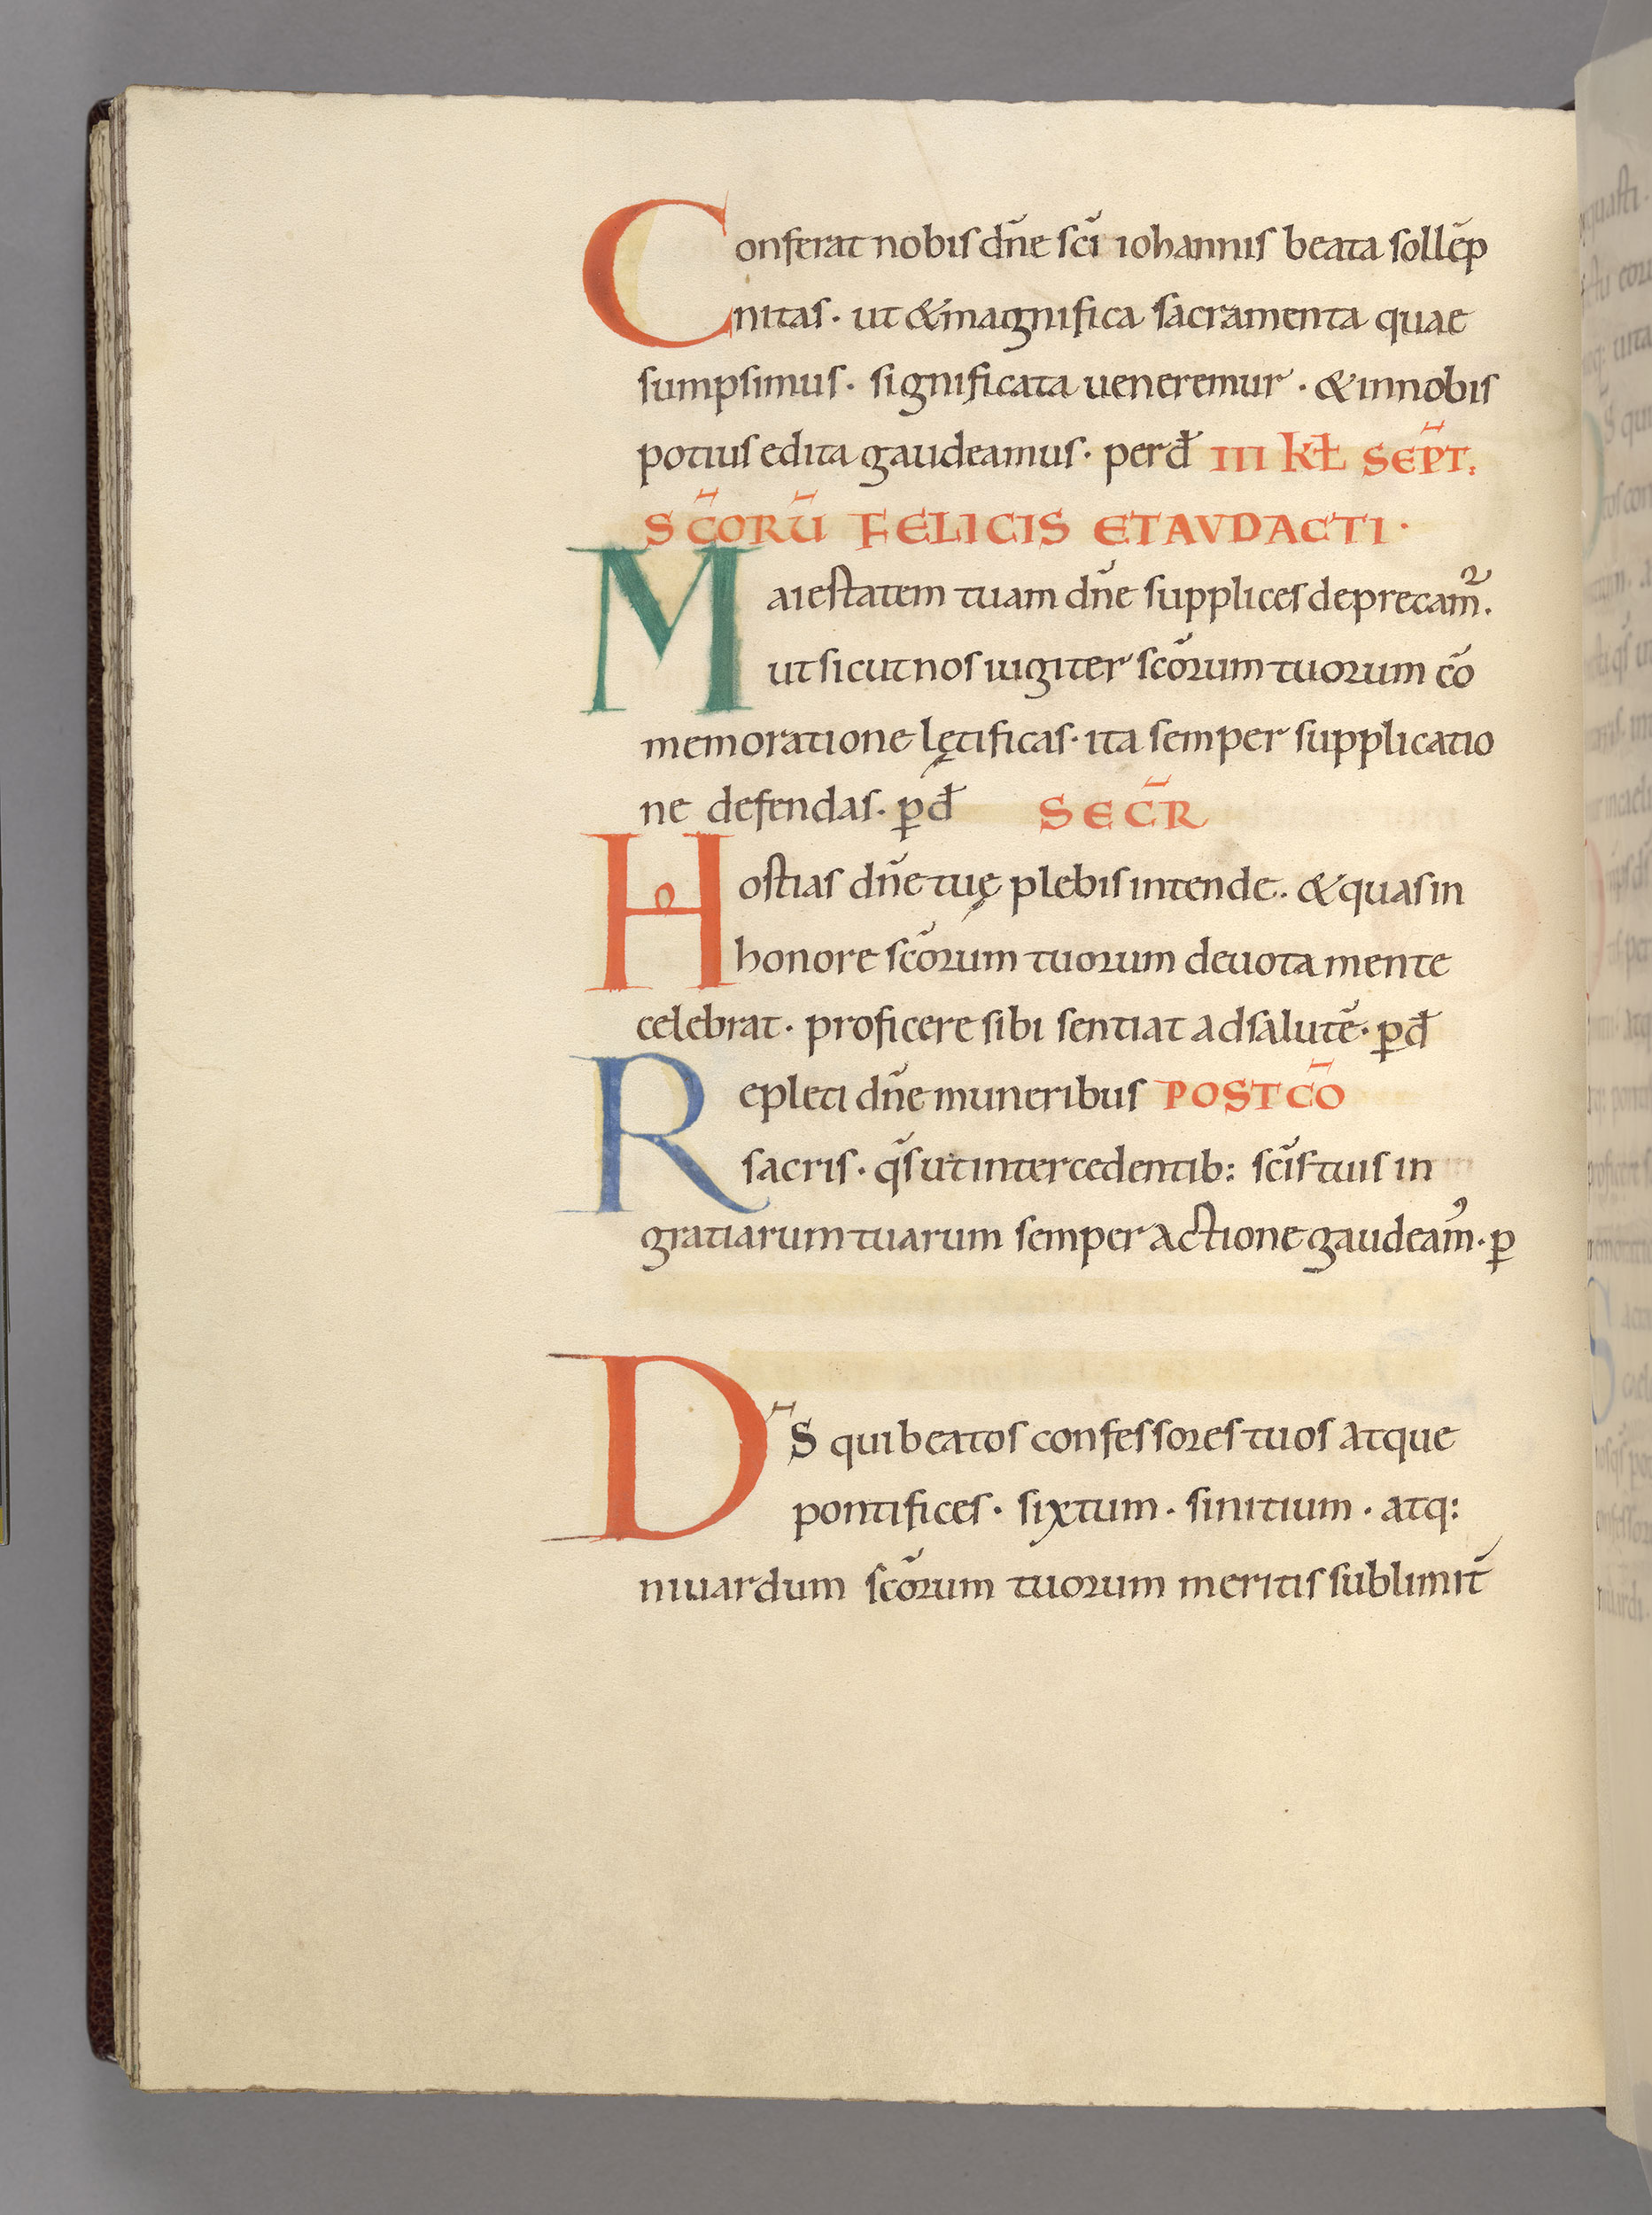 Conferat nobis dñe sc̄i iohannis beata sollēp
nitas · ut & magnifica sacramenta quae
sumpsimus · significata ueneremur · & innobis
potius edita gaudeamus · perđ III KŁ SEP̄T.
SC̄ORŪ FELICIS ET AVDACTI ·
Maiestatem tuam dñe supplices deprecam̃.
ut sicut nos iugiter sc̄orum tuorum cō
memoratione lętificas · ita semper supplicatio
ne defendas · ꝑđ SEC̄R
Hostias dñe tuę plebis intende. & quas in
honore sc̄orum tuorum deuota mente
celebrat · proficere sibi sentiat ad salutē · ꝑđ
Repleti dñe muneribus POSTC̄O
sacris · q̄s ut intercedentib: sc̄is tuis in
gratiarum tuarum semper actione gaudeamꝰ · ꝑ
D̄S qui beatos confessores tuos atque
pontifices · sixtum · sinitium · atq:
niuardum sc̄orum tuorum meritis sublimit̄